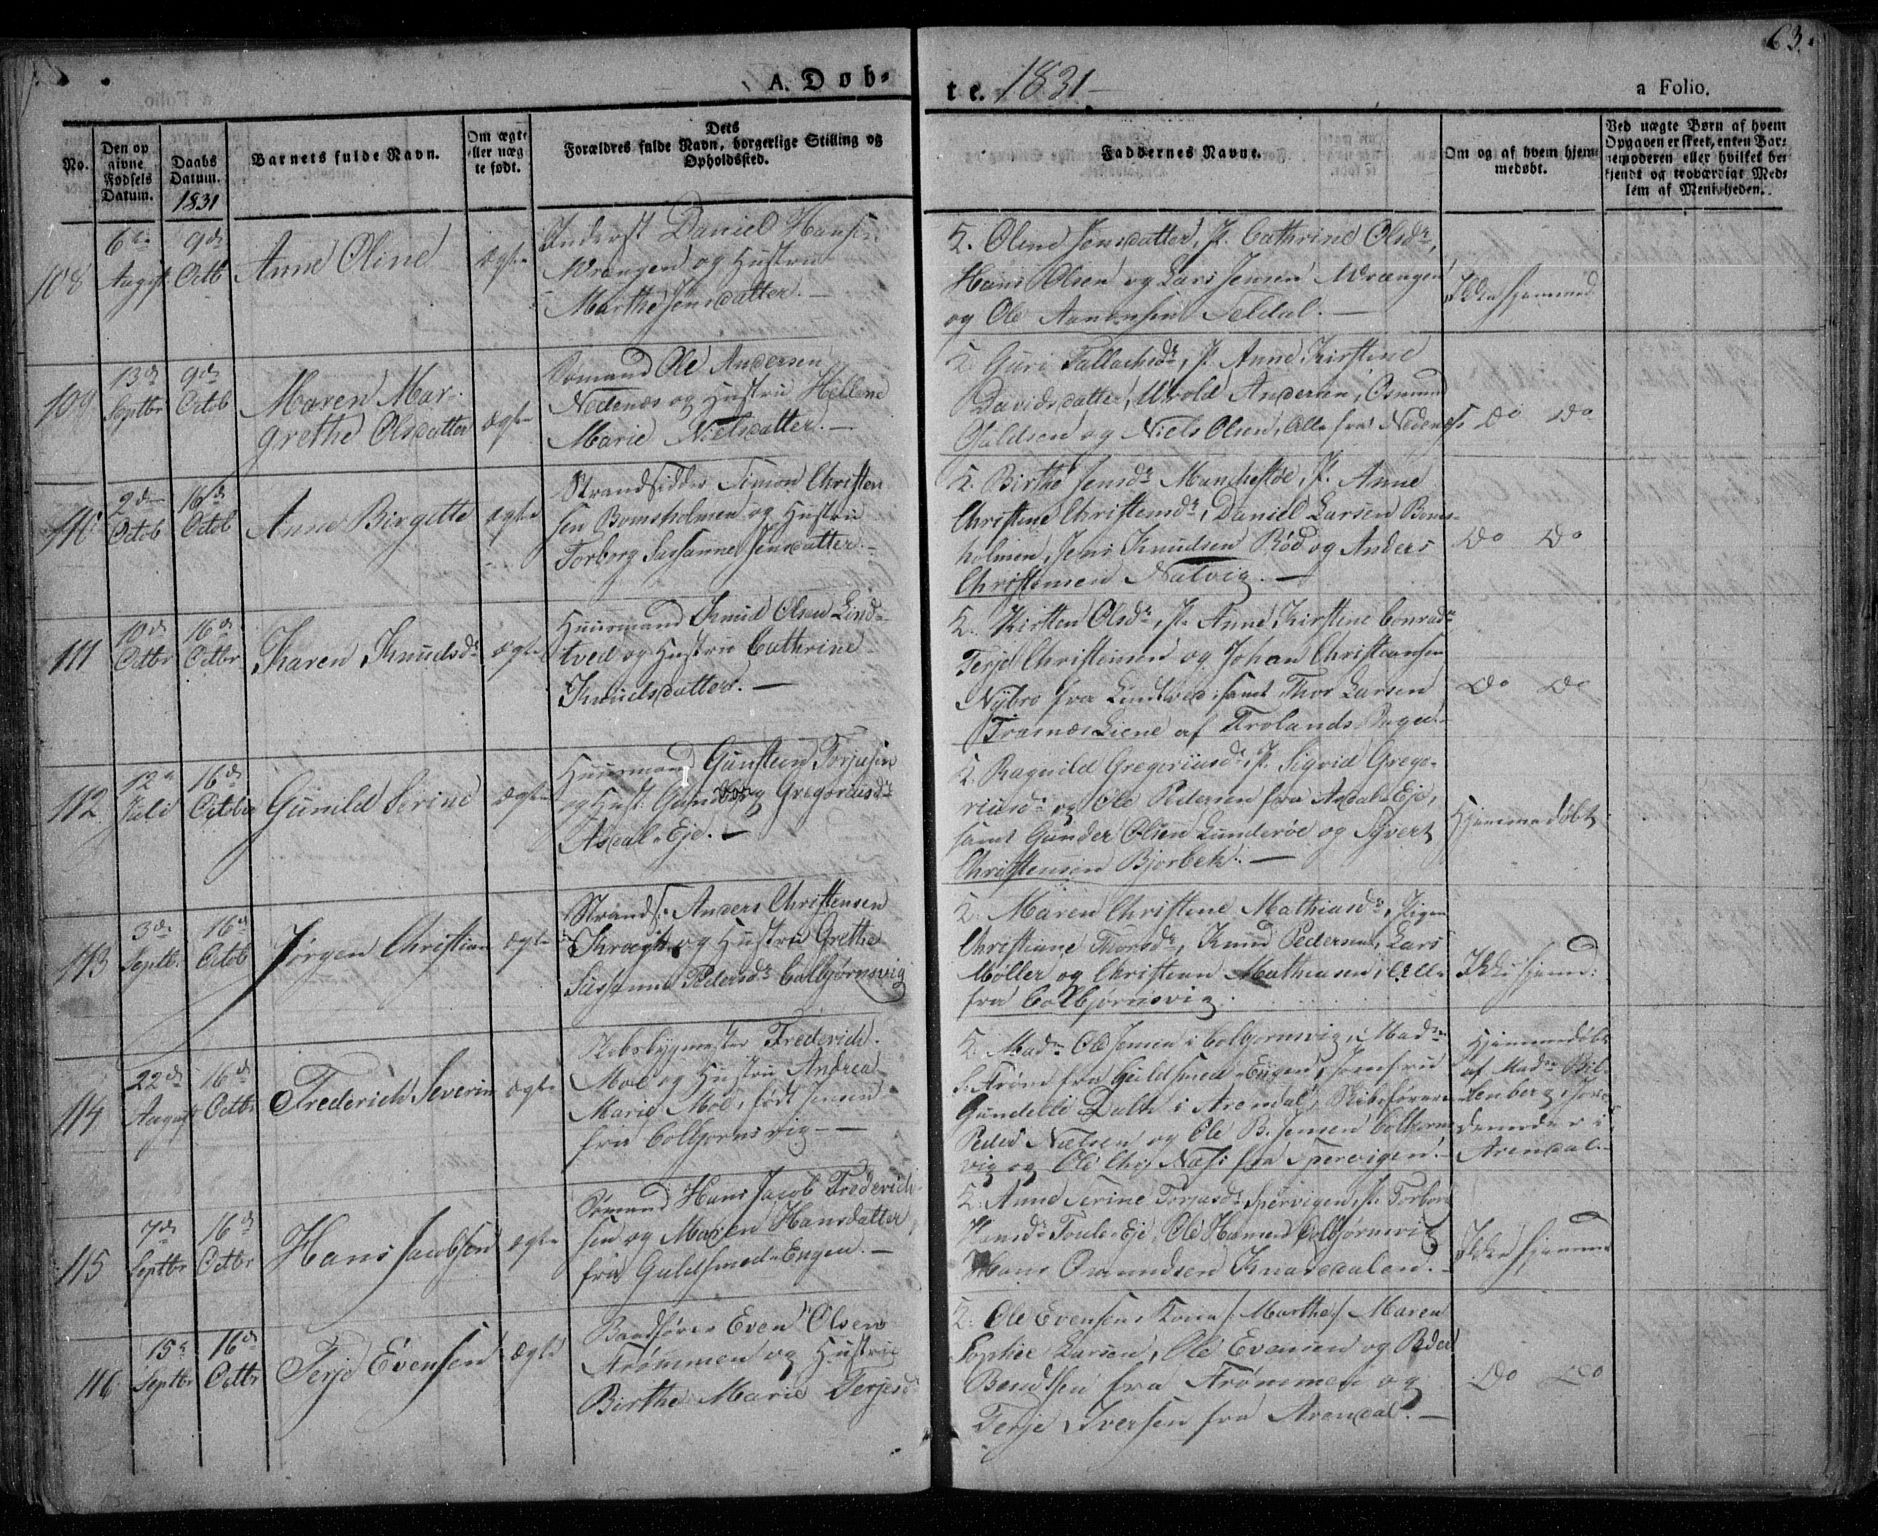 63.
A. Døb-
te. 1831
a Folio.
No.
Den op
givne
Fødsels
Datum.
Daabs
Datum.
1831
Barnets fulde Navn.
Om ægte
eller uæg
te født.
Dets
Forældres fulde Navn, borgerlige Stilling og
Opholdssted.
Faddernes Navne.
Om og af hvem hjem
medøbt.
Ved uægte Børn af hvem
Opgaven er skeet, enten Bar-
nemoderen eller hvilket be
kjendt og troværdigt Med-
lem af Menigheden.
108
6te
August
9de
Octb
Anne Oline
ægte
Inderst Daniel Hans.
Wrangen og Hustru
Marthe Jensdatter.
K. Oline Jensdatter, P. Cathrine Olsdr,
Hans Olsen og Lars Jensen Wrængen
og Ole Aanensen Seldal.
Ikke hjemmed
109
13de
Septbr
9de
Octob
Maren Mar-
grethe Olsdatter
ægte
Sømand Ole Andersen
Nedenæs og Hustru Hellene
Marie Nielsdatter.
K. Guri Tallachsdr, P. Anne Kirstine
Davidsdatter, Wrold Andersen, Osmund
og Niels Olsen, Alle fra Nedenæs
Do Do
110
2den
Octob
16de
Octob
Anne Birgette
ægte
Strandsidder Simon Christen
sen Bomsholmen og Hustru
Torborg Susanne Jensdatter.
K. Birthe Jensdr, P. Anne
Christine Christensdr, Daniel Larsen Boms-
holmen, Jens Knudsen Rød og Anders
Christensen Natvig.
Do Do
111
10de
Octbr
16de
Octbr
Karen Knudsdr
ægte
Huusmand Knud Olsen Lind-
tved og Hustru Cathrine
Knudsdatter.
K. Kirsten Olsdr, P. Anne Kirstine Conradsdr
Terje Christensen og Johan Christiansen
Nybro fra Lindtved, samt Thor Larsen
af Frolands
Do Do
112.
12te
Juli
16de
Octobr
Gunild Serine
ægte
Huusmand Gunsteen Torjusen
og Hust. Gunborg Gregoriusdr
Asdal-Eje.
K. Ragnild Gregoriusdr, P. Sigrid Grego-
riusdr og Ole Pedersen fra Asdal-Eje,
samt Gunder Olsen Lunderøe og Syvert
Christensen Bjorbek.
Hjemmedøbt
113
3de
Septbr
16de
Octob
Jørgen Christian
ægte
Strands: Anders Christensen
og Hustru Grethe
Susanne Pedersdr Colbjørnsvig
K. Maren Christine Mathiasdr, Pigen
Christiane Thorsdr, Knud Pedersen, Lars
Møller og Christian Mathiasen, Alle
fra Colbjørnsvig.
Ikke hjemd:
114
22de
August
16de
Octbr
Frederich Severin
ægte
Skibsbygmester Frederich
Moe og Hustru Andrea
Marie Moe, født Jensen
fra Colbjornsvig
K. Madm Ole Jensen i Colbjornsvig, Madm
S. Frøne fra Guldsmed-Engen, Jomfru
Gundelle Dall i Arendal, Skibsfører
Peder Nielsen og Ole B. Jensen Colbiørns
vig og Ole Chr. Næss fra Spervigen.
Hjemmedøbt
af Madm Bil-
lenberg, Jor-
demoder i
Arendal.
115
7de
Septbr
16de
Octbr
Hans Jacobsen
ægte
Sømand Hans Jacob Frederich-
sen og Maren Hansdatter
fra Guldsmed-Engen.
K. Anne Serine Torjusdr Spervigen, P. Torbor
Hansdr Foule-Eje, Ole Hansen Colbjørnsvig
Hans Omundsen Knardalen.
Ikke hjemme
116.
15de
Septbr
16de
Octbr
Terje Evensen
ægte
Baadfører Even Olsen
Frømmen og Hustru
Birthe Marie Terjesdr
K. Ole Evensens Kone /: Marthe :/ Maren
Sophie Larsen, Ole Evensen og Peder
Bendtsen fra Frømmen og
Terje Iversen fra Arendal.
Do Do